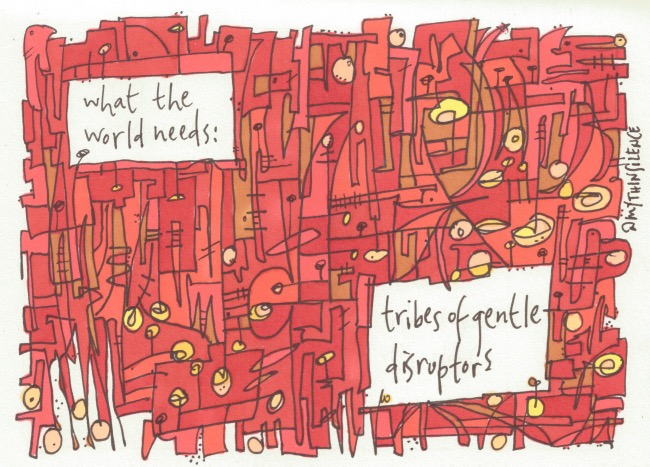 what the
world needs:
tribes of gentle
disruptors